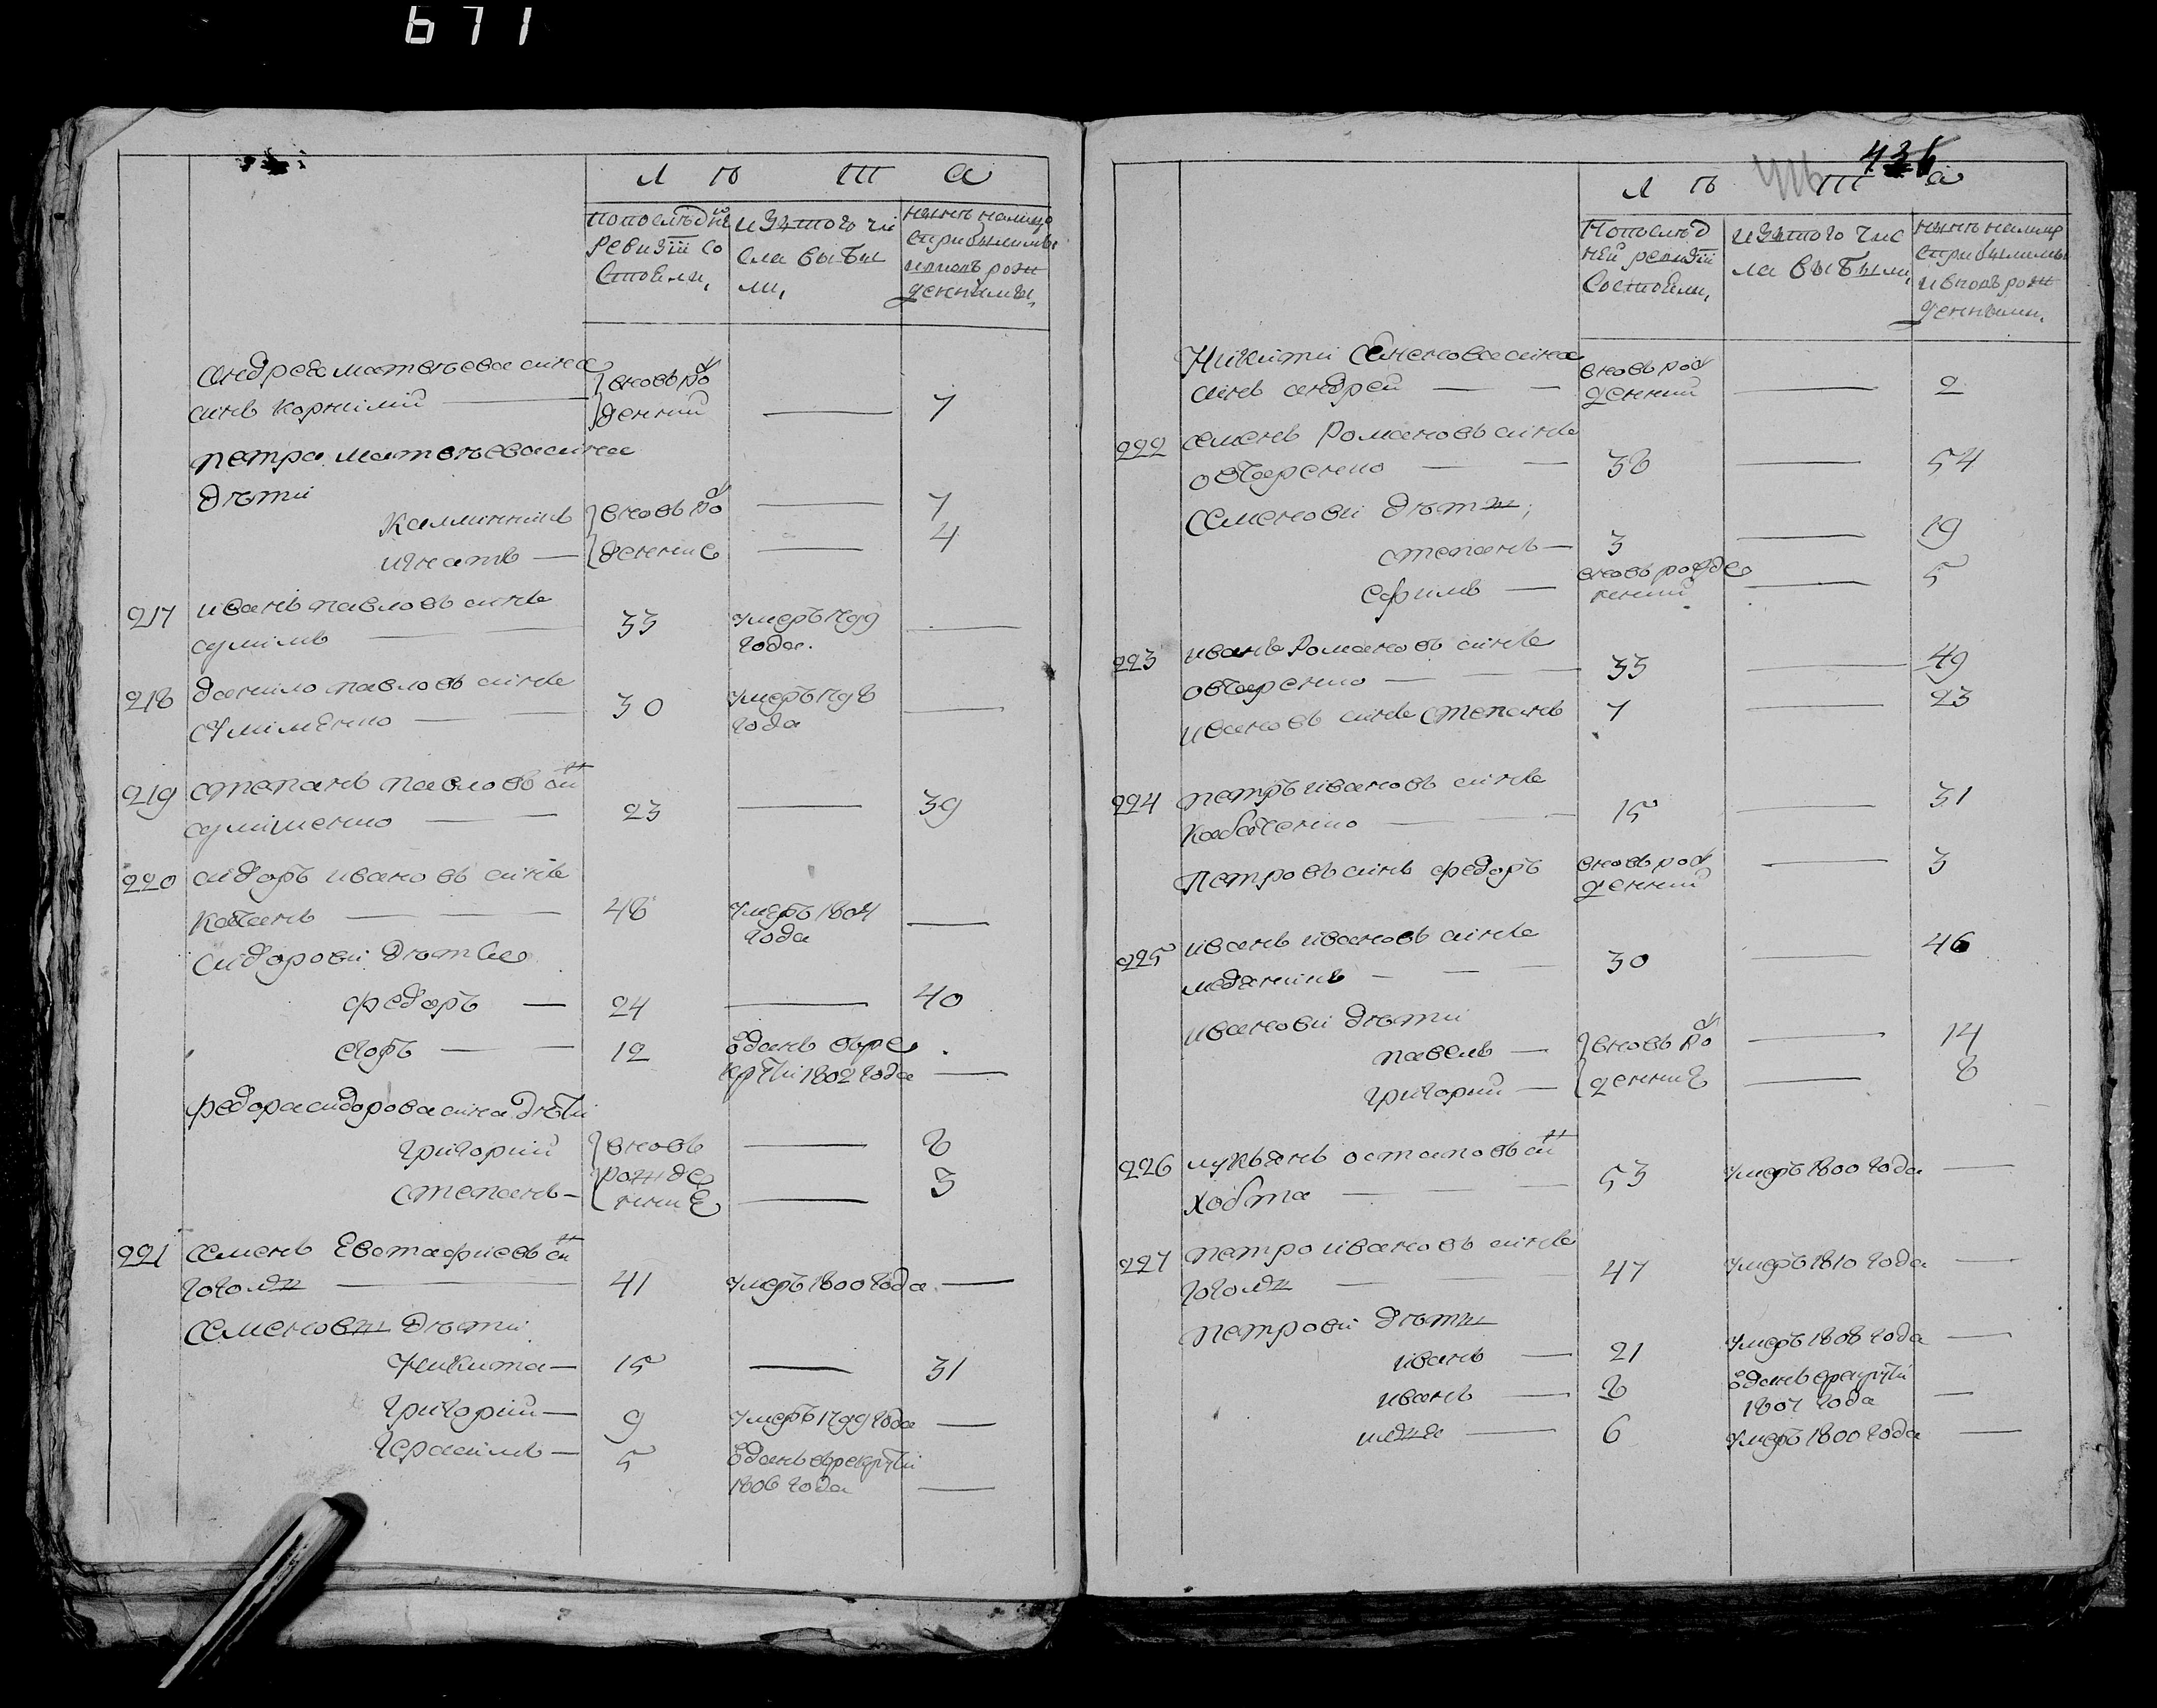 671
Л Ѣ Т А
Попослѣдней
ревизіи со
стояли,
изътого чи
сла выбы
ли,
нынѣ налицо
сприбылыми
ивновь рож
денными,
андрея матвѣева сина
синъ корнилій — вновь ро
жденний — 7
петра матвѣева сина
дѣти
калинникъ вновь ро — 7
игнатъ — жденние — 4
217 иванъ павловъ синъ
сулимъ — 33 умеръ 1799
года. —
218 данило павловъ синъ
сулименко — 30 умеръ 1798
года —
219 степанъ павловъ син
сулименко — 23 — 39
220 сидоръ ивановъ синъ
качанъ — 48 умеръ 1804
года —
сидорови дѣтье
федоръ — 24 — 40
егоръ — 12 ѿданъ врек
рути 1802 года —
федора сидорова сина дѣти
григорий вновь — 8
степанъ — рожде
нние — 3
221 семенъ Евстафиевъ син
гогол — 41 умеръ 1800 года —
семенови дѣти
никита — 15 — 31
григорий — 9 умеръ 1799 года —
герасимъ — 5 ѿданъ врекрути
1806 года —
436
Л Ѣ Т А
Попослѣд
ней ревизіи
состояли,
изътого чис
ла выбыли,
нынѣ налицо
сприбылыми
ивновь рож
денными.
Никити семенова сина вновь рож
синъ андрей — денний — 2
222 семенъ романовъ синъ
овчаренко — 38 — 54
семенови дѣти;
степанъ — 3 — 19
ефимъ — вновь рожде
нний — 5
223 иванъ романовъ синъ
овчаренко — 33 — 49
ивановъ синъ степанъ 7 — 23
224 петръ ивановъ синъ
кабаченко — 15 — 31
петровъ синъ федоръ вновь рож
денний — 3
225 иванъ ивановъ синъ
меданикъ — 30 — 46
иванови дѣти
павелъ — вновь ро — 14
григорий — жденние — 8
226 лукьянъ остаповъ син
хобта — 53 умеръ 1800 года —
227 петро ивановъ синъ
гогол — 47 умеръ 1810 года —
петрови дѣти
иванъ — 21 умеръ 1808 года —
иванъ — 8 ѿданъ врекрути
1807 года —
6 умеръ 1800 года —